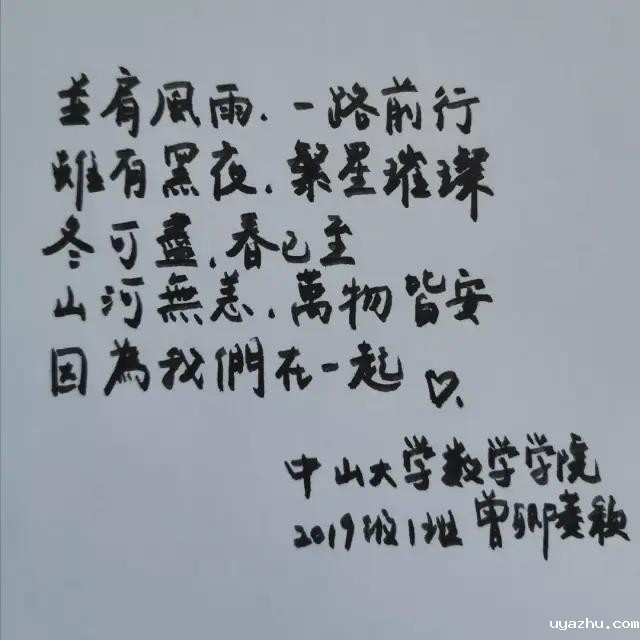 並肩風雨.一路前行
雖有黑夜.繁星璀璨
冬可盡.春已至
山河無恙.萬物皆安
因為我們在一起♡.
中山大学数学学院
2019班1班 曾
uyazhu.com